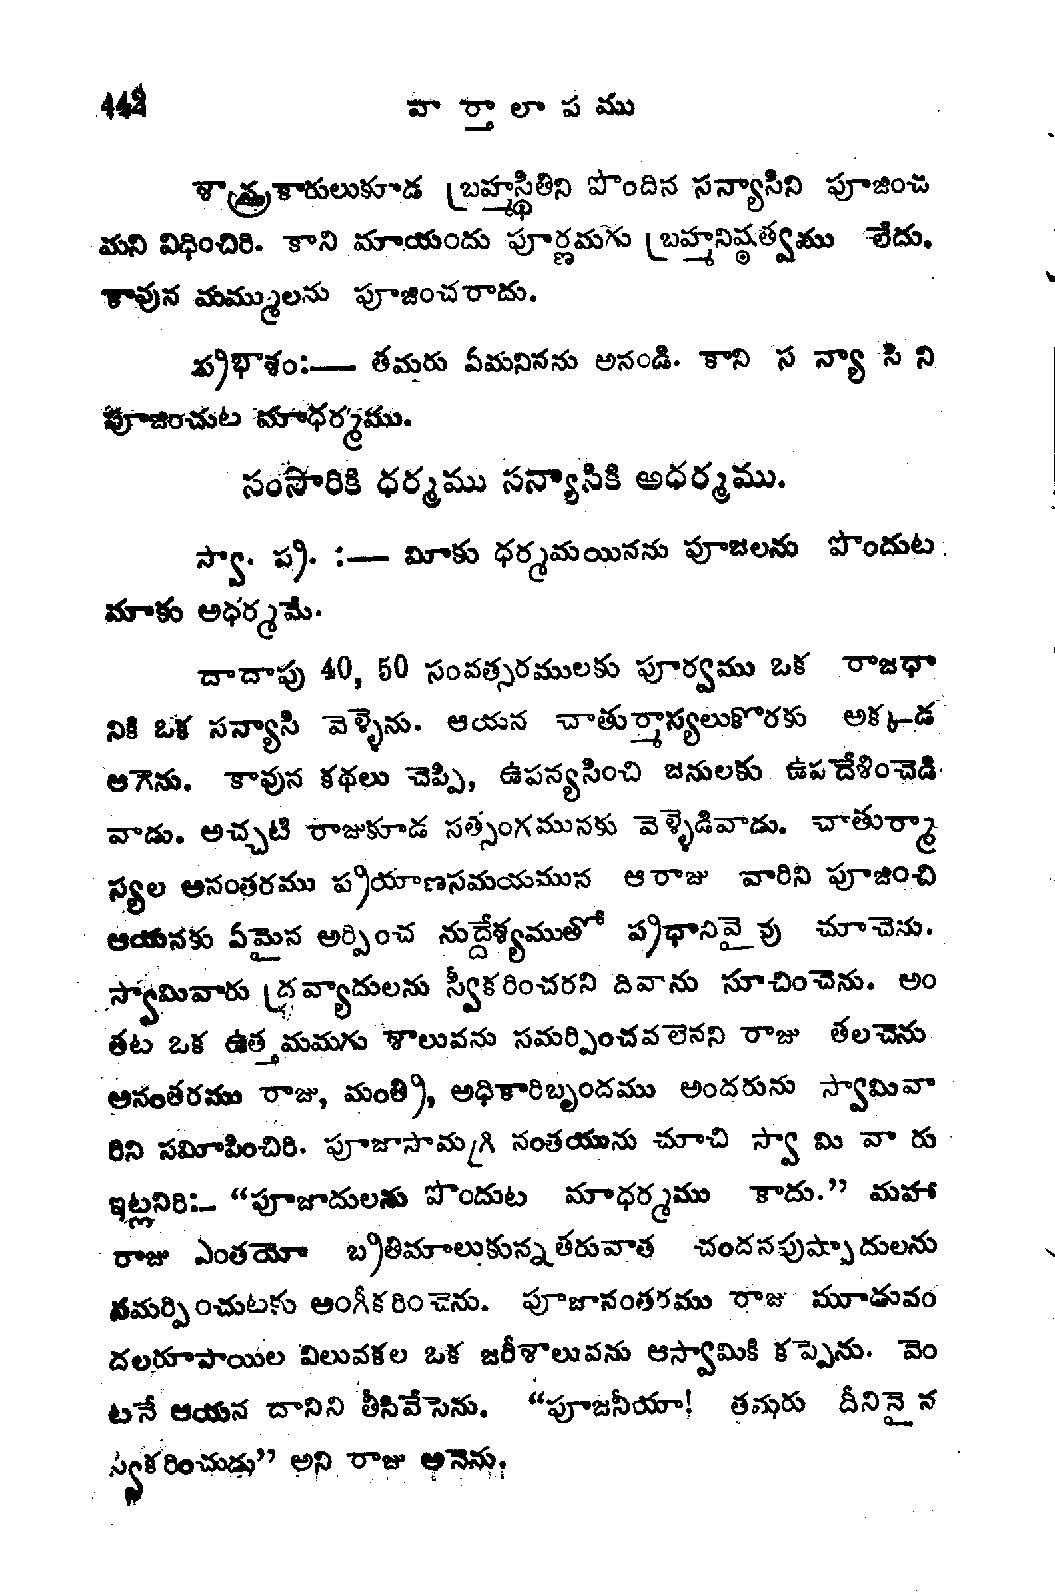 442 వార్తాలాపము
శాస్త్రకారులుకూడ బ్రహ్మస్థితిని పొందిన సన్యాసిని పూజించ
మని విధించిరి. కాని మాయందు పూర్ణమగు బ్రహ్మనిష్ఠత్వము లేదు.
కావున మమ్ములను పూజించరాదు.
ప్రభాశం:— తమరు ఏమనినను అనండి. కాని సన్యాసిని
పూజించుట మాధర్మము.
సంసారికి ధర్మము సన్యాసికి అధర్మము.
స్వా. ప్ర. :— మీకు ధర్మమయినను పూజలను పొందుట
మాకు అధర్మమే.
దాదాపు 40, 50 సంవత్సరములకు పూర్వము ఒక రాజధా
నికి ఒక సన్యాసి వెళ్ళెను. ఆయన చాతుర్మాస్యలుకొరకు అక్కడ
ఆగెను. కావున కథలు చెప్పి, ఉపన్యసించి జనులకు ఉపదేశించెడి
వాడు. అచ్చటి రాజుకూడ సత్సంగమునకు వెళ్ళెడివాడు. చాతుర్మా
స్యల అనంతరము ప్రయాణసమయమున ఆరాజు వారిని పూజించి
ఆయనకు ఏమైన అర్పించ నుద్దేశ్యముతో ప్రధానివైపు చూచెను.
స్వామివారు ద్రవ్యాదులను స్వీకరించరని దివాను సూచించెను. అం
తట ఒక ఉత్తమమగు శాలువను సమర్పించవలెనని రాజు తలచెను
అనంతరము రాజు, మంత్రి, అధికారిబృందము అందరును స్వామివా
రిని సమీపించిరి. పూజాసామగ్రి నంతయును చూచి స్వామివారు
ఇట్లనిరి:— “పూజాదులను పొందుట మాధర్మము కాదు.” మహా
రాజు ఎంతయో బ్రతిమాలుకున్న తరువాత చందనపుష్పాదులను
సమర్పించుటకు అంగీకరించెను. పూజానంతరము రాజు మూడువం
దలరూపాయిల విలువకల ఒక జరీశాలువను ఆస్వామికి కప్పెను. వెం
టనే ఆయన దానిని తీసివేసెను. “పూజనీయా! తమరు దీనినైన
స్వీకరించుడు” అని రాజు అనెను.